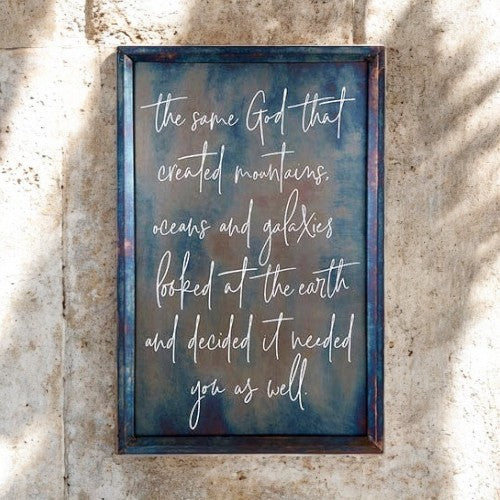 the same God that
created mountains,
oceans and galaxies
looked at the earth
and decided it needed
you as well.